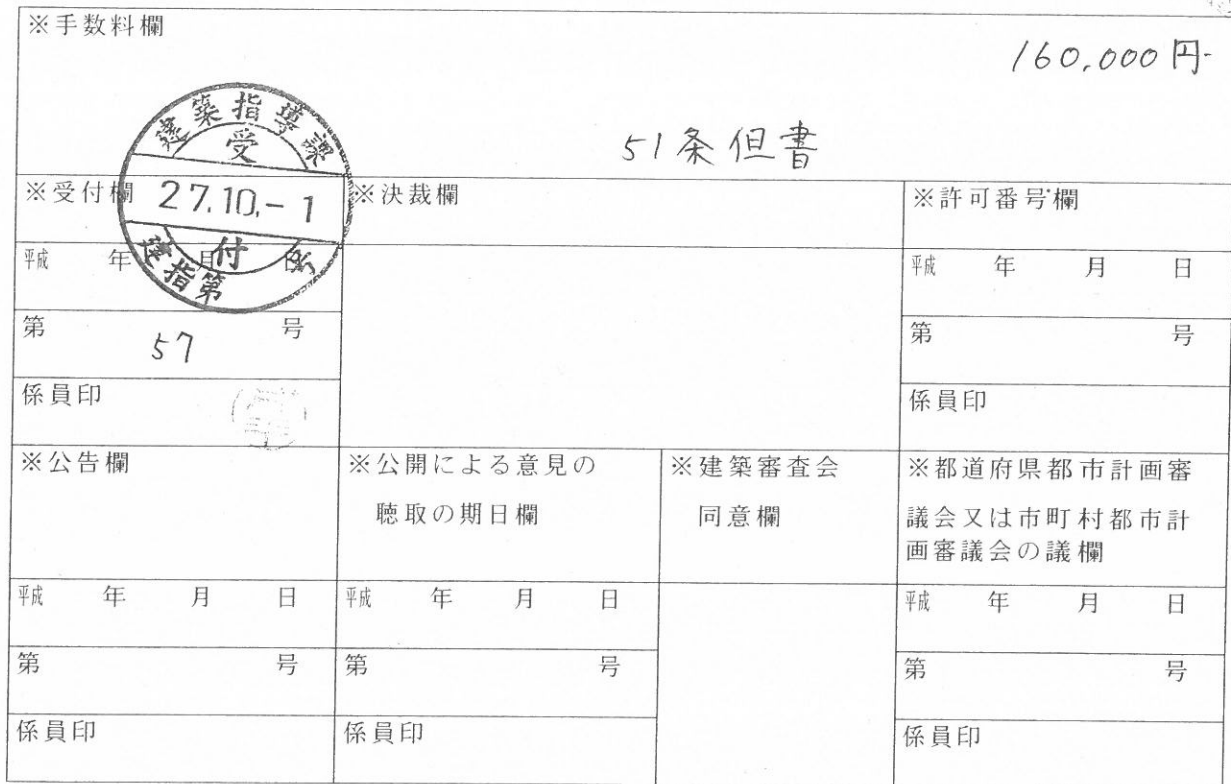 ※手数料欄
160,000円-
51条但書
建築指導課
受
27.10.-1
付
建指第 号
※受付欄
※決裁欄
※許可番号欄
平成 年 月 日
平成 年 月 日
第 57 号
第 号
係員印
係員印
※公告欄
※公開による意見の
聴取の期日欄
※建築審査会
同意欄
※都道府県都市計画審
議会又は市町村都市計
画審議会の議欄
平成 年 月 日
平成 年 月 日
平成 年 月 日
第 号
第 号
第 号
係員印
係員印
係員印